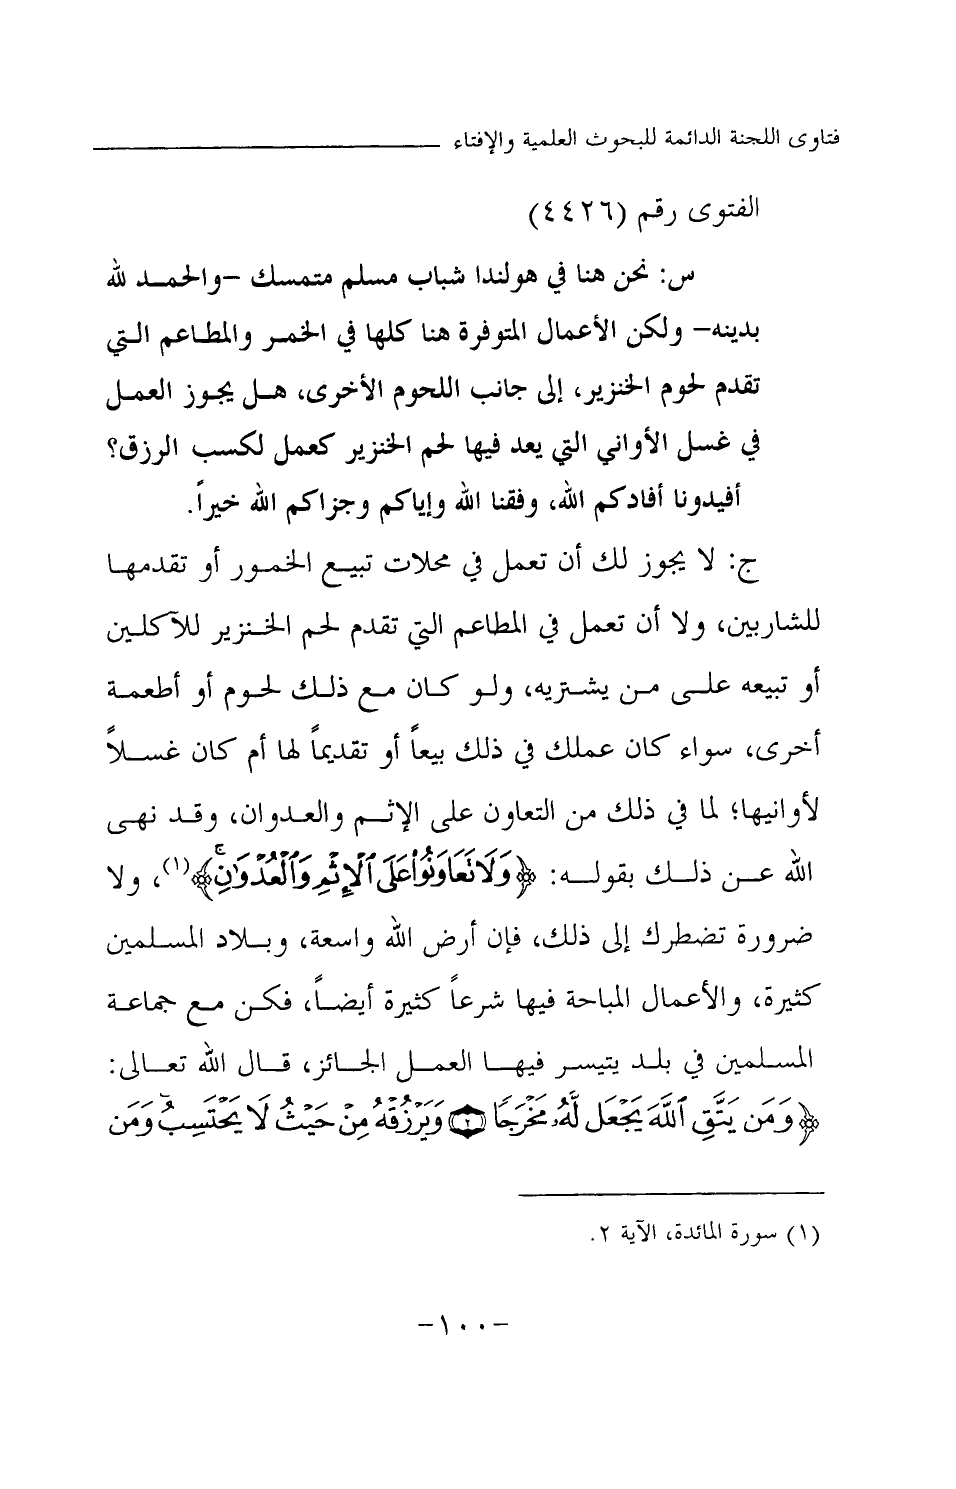 فتاوى اللجنة الدائمة للبحوث العلمية والإفتاء
الفتوى رقم (٤٤٢٦)
س: نحن هنا في هولندا شباب مسلم متمسك -والحمد لله
بدينه- ولكن الأعمال المتوفرة هنا كلها في الخمر والمطاعم التي
تقدم لحوم الخنزير، إلى جانب اللحوم الأخرى، هل يجوز العمل
في غسل الأواني التي يعد فيها لحم الخنزير كعمل لكسب الرزق؟
أفيدونا أفادكم الله، وفقنا الله وإياكم وجزاكم الله خيراً.
ج: لا يجوز لك أن تعمل في محلات تبيع الخمور أو تقدمها
للشاربين، ولا أن تعمل في المطاعم التي تقدم لحم الخنزير للآكلين
أو تبيعه على من يشتريه، ولو كان مع ذلك لحوم أو أطعمة
أخرى، سواء كان عملك في ذلك بيعاً أو تقديماً لها أم كان غسلاً
لأوانيها؛ لما في ذلك من التعاون على الإثم والعدوان، وقد نهى
الله عن ذلك بقوله: ﴿وَلَا تَعَاوَنُوا۟ عَلَى ٱلْإِثْمِ وَٱلْعُدْوَٰنِ ۚ﴾(١)، ولا
ضرورة تضطرك إلى ذلك، فإن أرض الله واسعة، وبلاد المسلمين
كثيرة، والأعمال المباحة فيها شرعاً كثيرة أيضاً، فكن مع جماعة
المسلمين في بلد يتيسر فيها العمل الجائز، قال الله تعالى:
﴿وَمَن يَتَّقِ ٱللَّهَ يَجْعَل لَّهُۥ مَخْرَجًا ۝٢ وَيَرْزُقْهُ مِنْ حَيْثُ لَا يَحْتَسِبُ ۚ وَمَن
(١) سورة المائدة، الآية ٢.
-١٠٠-